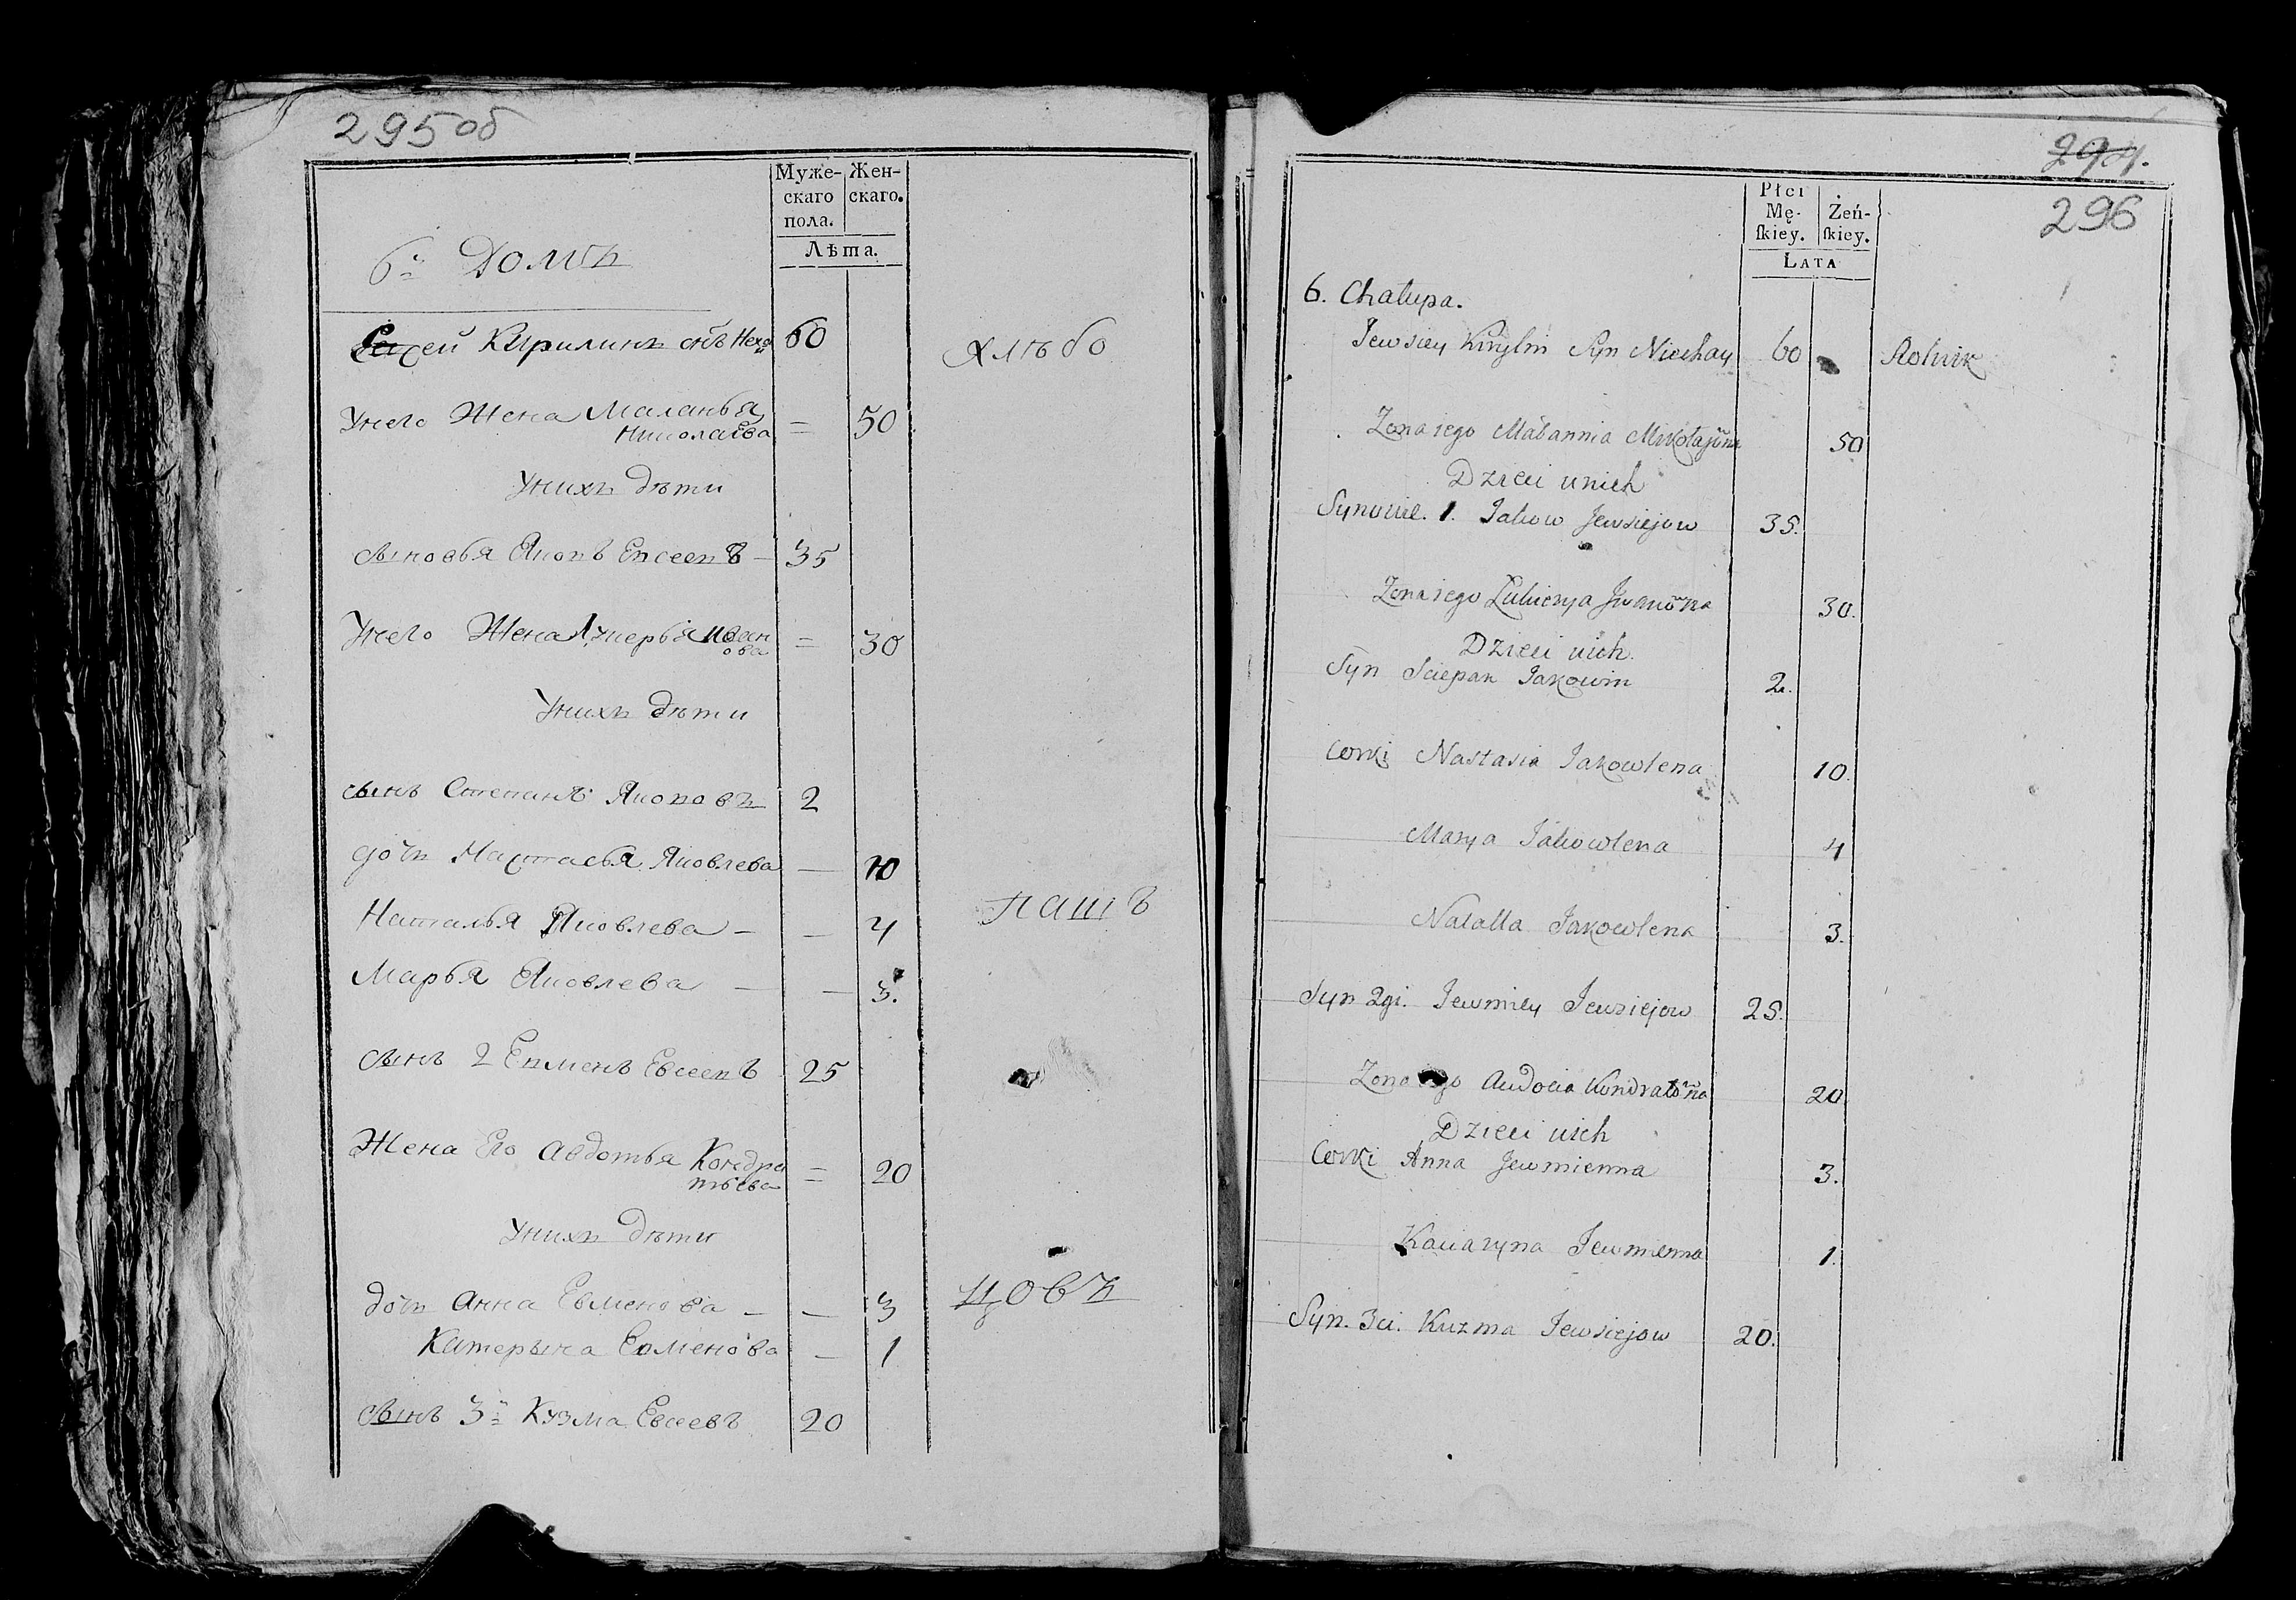 295об
Муже- Жен-
скаго скаго.
пола.
Лѣта.
6й Домъ
Евсей Кирилинъ снъ Неха й 60 хлѣбо
Унего Жена Маланья = 50
Николаева
Унихъ дѣти
сыновья Яковъ Евсеевъ – 35
Унего Жена Лукерья Иван = 30
ова
Унихъ дѣти
сынъ Степанъ Яковов 2
дочь Настасья Яковлева — 10
Наталья Яковлева – — 4 пашъ
Марья Яковлева — — 3.
сынъ 2 Евменъ Евсеевъ 25
Жена Его Авдотья Кондра = 20
тьева
Унихъ дѣти
дочь Анна Евменова – — 3 цовъ
Катерына Евменова — 1
сынъ 3й Кузма Евсеевъ 20
294.
296
Płci
Mę- Żeń-
ſkiey. ſkiey.
LATA
6. Chałupa.
Jewsiey Kirylin Syn Niechay 60 Rolnik
Zona iego Małannia Mikołajowna 50
Dzieci unich
Synowie. 1. Jakow Jewsiejow 35.
Zona iego Łukierya Iwanowna 30.
Dzieci uich.
Syn Sciepan Jakowin 2.
Corki Nastasia Jakowlena 10.
Marya Jakowlena 4
Natalla Jakowlena 3.
Syn 2gi. Jewmiey Jewsiejow 25.
Zona iego Audocia Kondratowna 20
Dzieci uich
Corki Anna Jewmienna 3.
Kaciaryna Jewmienna 1.
Syn. 3ci. Kuzma Jewsiejow 20.